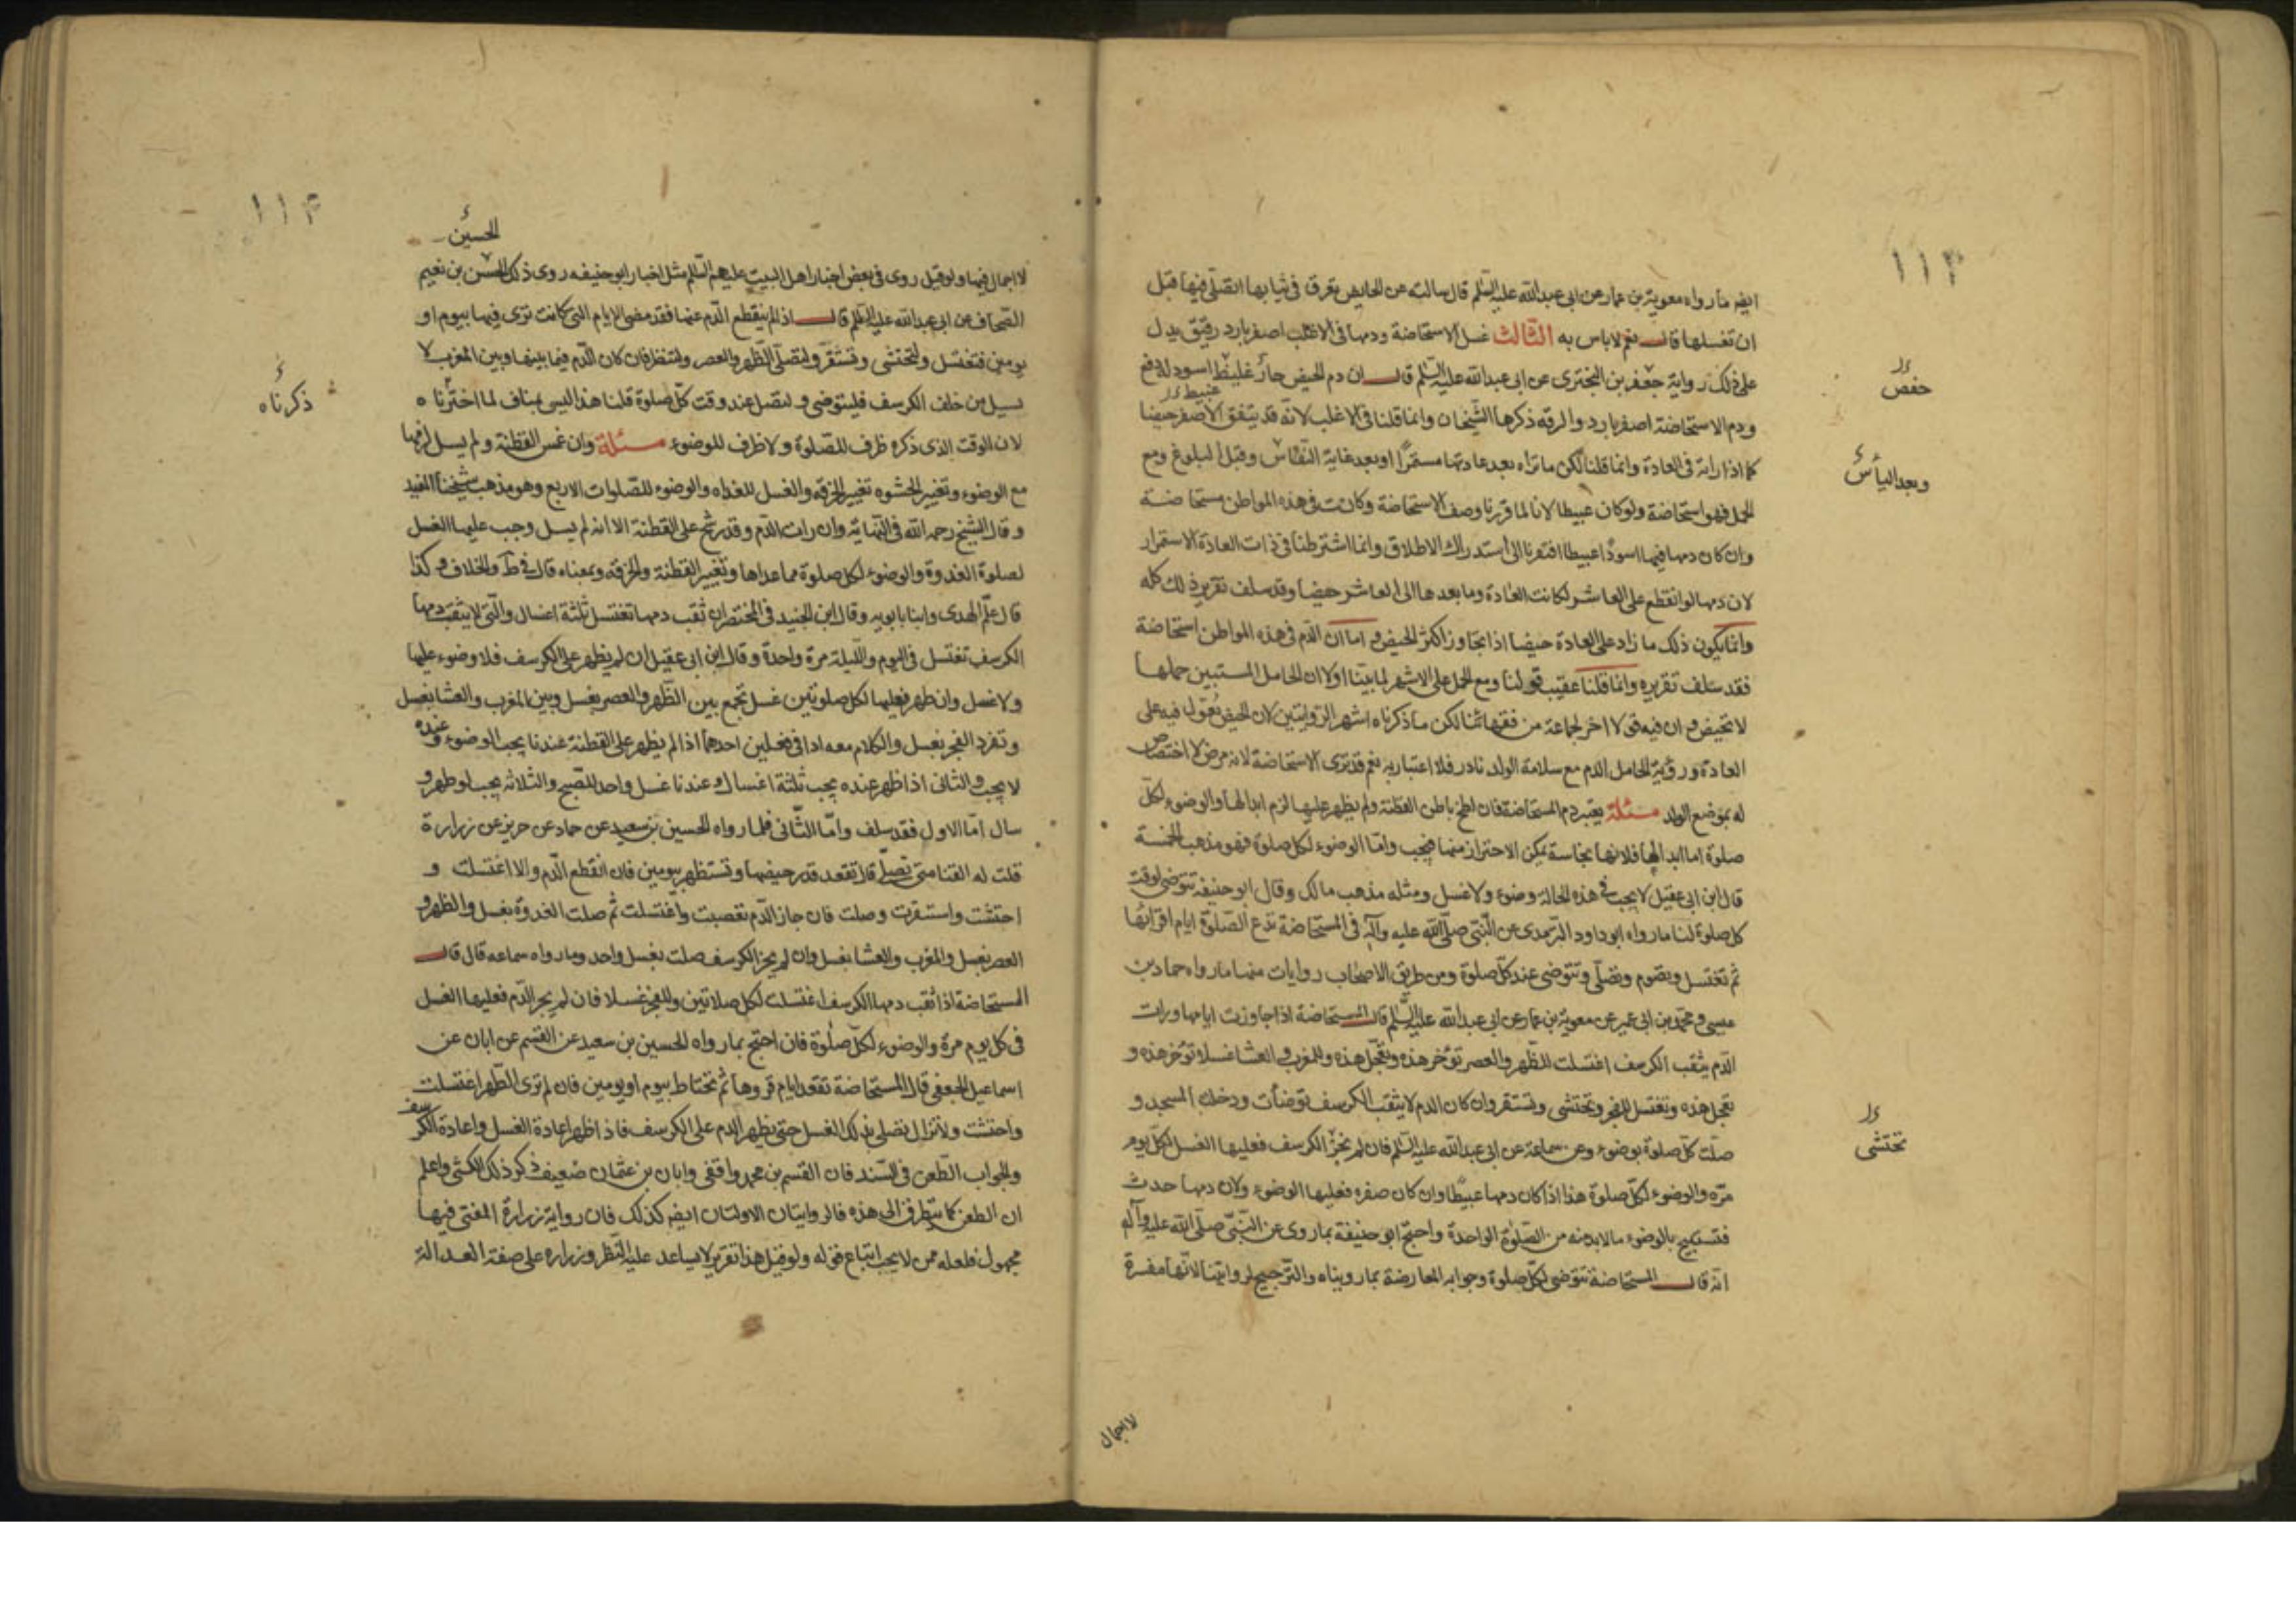 ١١٣
ايضا ما رواه معوية بن عمار عن ابى عبدالله عليه السلم قال سالته عن الحايض تعرق فى ثيابها اتصلى فيها قبل
ان تغسلها قال نعم لا باس به الثالث غسل الاستحاضة ودمها فى الاغلب اصفر بارد رقيق يدل
على ذلك رواية جعفر بن البخترى عن ابى عبدالله عليه السلم قال ان دم الحيض حار غليظ اسود له دفع
حفص
عبيط
ودم الاستحاضة اصفر بارد والرقه ذكرها الشيخان وانما قلنا فى الاغلب لانه قد يتفق الاصفر حيضا
كما اذا راته فى العادة وانما قلنا لكن ما تراه بعد عادتها مستمرا او بعد غاية النفاس وقبل البلوغ ومع
وبعد اليأس
الحمل فهو استحاضة ولو كان عبيطا لانا لما قررنا وصف الاستحاضة وكانت فى هذه المواطن مستحاضة
وان كان دمها فيها اسودا عبيطا افتقرنا الى استدراك الاطلاق وانما اشترطنا فى ذات العادة الاستمرار
لان دمها لو انقطع على العاشر لكانت العادة وما بعدها الى العاشر حيضا وقد سلف تقرير ذلك كله
وانما يكون ذلك ما زاد على العادة حيضا اذا تجاوز اكثر الحيض و اما ان الدم فى هذه المواطن استحاضة
فقد سلف تقريره وانما قلنا عقيب قولنا ومع الحمل على الاشهر لما بينا اولا ان الحامل المستبين حملها
لا تحيض و ان فيه قولا اخر لجماعة من فقهائنا لكن ما ذكرناه اشهر الروايتين لان الحيض يعول فيه على
العادة ورؤية الحامل الدم مع سلامة الولد نادر فلا اعتبار به نعم قد ترى الاستحاضة لانه مرض لا اختصاص
له بموضع الولد مسئلة يعتبر دم المستحاضة فان لطخ باطن القطنة ولم يظهر عليها لزم ابدالها والوضوء لكل
صلوة اما ابدالها فلانها نجاسة يمكن الاحتراز منها فيجب واما الوضوء لكل صلوة فهو مذهب الخمسة
قال ابن ابى عقيل لا يجب فى هذه الحالة وضوء ولا غسل ومثله مذهب مالك وقال ابو حنيفة تتوضى لوقت
كل صلوة لنا ما رواه ابو داود الترمدى عن النبى صلى الله عليه وآله فى المستحاضة تدع الصلوة ايام اقرائها
ثم تغتسل وتصوم وتصلى وتتوضى عند كل صلوة ومن طريق الاصحاب روايات منها ما رواه حماد بن
عيسى و محمد بن ابى عمير عن معوية بن عمار عن ابى عبدالله عليه السلم قال المستحاضة اذا جاوزت ايامها ورات
الدم يثقب الكرسف اغتسلت للظهر والعصر تؤخر هذه وتعجل هذه وللمغرب و العشا غسلا تؤخر هذه و
تعجل هذه وتغتسل للفجر وتحتشى وتستقر وان كان الدم لا يثقب الكرسف توضأت ودخلت المسجد و
تحتشى
صلت كل صلوة بوضوء وعن سماعة عن ابى عبدالله عليه السلم فان لم يجز الكرسف فعليها الغسل لكل يوم
مرة والوضوء لكل صلوة هذا اذا كان دمها عبيطا وان كان صفره فعليها الوضوء ولان دمها حدث
فتستبيح بالوضوء ما لابد منه من الصلوة الواحدة واحتج ابو حنيفة بما روى عن النبى صلى الله عليه وآله
انه قال المستحاضة تتوضى لكل صلوة وجوابه المعارضة بما رويناه والترجيح لروايتنا لانها مفسرة
لا اجمال
١١٣
الحسين
لا اجمال فيها ولو قيل روى فى بعض اخبار اهل البيت عليهم السلم مثل اخبار ابو حنيفه روى ذلك الحسن بن نعيم
الصحاف عن ابى عبدالله عليه السلم قال اذا لم ينقطع الدم عنها فقد مضى الايام التى كانت ترى فيها بيوم او
يومين فتغتسل ولتحتشى وتستقر ولتصلى الظهر والعصر ولتنظر فان كان الدم فيما بينها وبين المغرب لا
يسيل من خلف الكرسف فليتوضى و لتصل عند وقت كل صلوة قلنا هذا ليس بمناف لما اخترناه
ذكرناه
لان الوقت الذى ذكره ظرف للصلوة ولا ظرف للوضوء مسئلة وان غمس القطنة ولم يسل لزمها
مع الوضوء وتغيير الحشوه تغيير الخرقه والغسل للغداه والوضوء للصلوات الاربع وهو مذهب شيخنا المفيد
وقال الشيخ رحمه الله فى النهاية وان رات الدم وقد رشح على القطنة الا انه لم يسل وجب عليها الغسل
لصلوة الغدوة والوضوء لكل صلوة مما عداها وتغيير القطنة والخرقه وبمعناه قال فى ط والخلاف و كذا
قال علم الهدى وابنا بابويه وقال ابن الجنيد فى المختصر ان ثقب دمها تغتسل ثلثة اغسال والتى لا يثقب دمها
الكرسف تغتسل فى اليوم والليلة مرة واحدة وقال ابن ابى عقيل ان لم يظهر على الكرسف فلا وضوء عليها
ولا غسل وان ظهر فعليها لكل صلوتين غسل تجمع بين الظهر والعصر بغسل وبين المغرب والعشا بغسل
وتفرد الفجر بغسل والكلام معه اذا فى فصلين احدهما اذا لم يظهر على القطنة عندنا يجب الوضوء وعنده
لا يجب والثانى اذا ظهر عنده يجب ثلثة اغسال و عندنا غسل واحد للصبح والثلاثه يجب لو ظهر و
سال اما الاول فقد سلف واما الثانى فلما رواه الحسين بن سعيد عن حماد عن حريز عن زرارة
قلت له النفسا متى تصلى قال تقعد قدر حيضها وتستظهر بيومين فان انقطع الدم والا اغتسلت و
احتشت واستقرت وصلت فان جاز الدم تعصبت واغتسلت ثم صلت الغدوة بغسل والظهر و
العصر بغسل والمغرب والعشا بغسل وان لم يجز الكرسف صلت بغسل واحد وما رواه سماعه قال قال
المستحاضة اذا ثقب دمها الكرسف اغتسلت لكل صلاتين وللفجر غسلا فان لم يجز الدم فعليها الغسل
فى كل يوم مرة والوضوء لكل صلوة فان احتج بما رواه الحسين بن سعيد عن القسم عن ابان عن
اسماعيل الجعفى قال المستحاضة تقعد ايام قروها ثم تحتاط بيوم او يومين فان لم ترى الطهر اغتسلت
واحتشت ولا تزال تصلى بذلك الغسل حتى يظهر الدم على الكرسف فاذا ظهر اعادة الغسل واعادة الكرسف
والجواب الطعن فى السند فان القسم بن محمد واقفى وابان بن عثمان ضعيف ذكر ذلك الكشى واعلم
ان الطعن كما يتطرق الى هذه فالروايتان الاولتان ايضا كذلك فان رواية زرارة المفتى فيها
مجهول فلعله ممن لا يجب اتباع قوله ولو قيل هذا تقرير لا يساعد عليه النظر و زراره على صفة العدالة